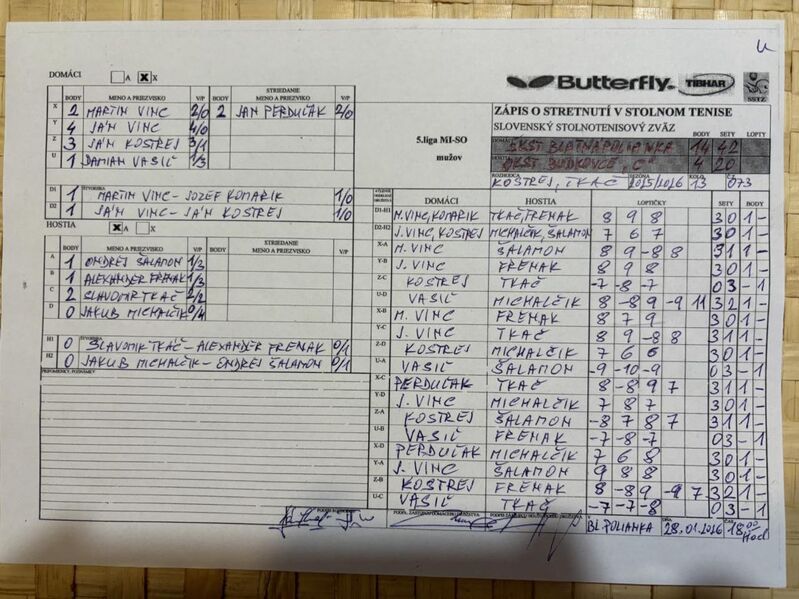 DOMÁCI A X X
Butterfly TIBHAR SSTZ
BODY MENO A PRIEZVISKO V/P BODY STRIEDANIE MENO A PRIEZVISKO V/P
X 2 MARTIN VINC 2/0 2 JÁN PERDUĽAK 2/0
Y 4 JÁN VINC 4/0
Z 3 JÁN KOSTREJ 3/1
U 1 DAMIAN VASIĽ 1/3
5.liga MI-SO
mužov
ZÁPIS O STRETNUTÍ V STOLNOM TENISE
SLOVENSKÝ STOLNOTENISOVÝ ZVÄZ BODY SETY LOPTY
ŠKST BLATNÁ POLIANKA 14 42
OKST BUDKOVCE "C" 4 20
ROZHODCA KOLO Č.Z.
KOSTREJ, TKAČ 2025/2026 13 073
ŠTVORHRA
D1 1 MARTIN VINC - JOZEF KOMARIK 1/0
D2 1 JÁN VINC - JÁN KOSTREJ 1/0
HOSTIA X A X
BODY MENO A PRIEZVISKO V/P BODY STRIEDANIE MENO A PRIEZVISKO V/P
A 1 ONDREJ ŠALAMON 1/3
B 1 ALEXANDER FRENAK 1/3
C 2 SLAVOMIR TKAČ 2/2
D 0 JAKUB MICHALČIK 0/4
ŠTVORHRA
H1 0 SLAVOMIR TKAČ - ALEXANDER FRENAK 0/1
H2 0 JAKUB MICHALČIK - ONDREJ ŠALAMON 0/1
PRIPOMIENKY, POZNÁMKY
DOMÁCI HOSTIA LOPTIČKY SETY BODY
D1-H1 M. VINC, KOMARIK TKAČ, FRENAK 8 9 8 3 0 1 -
D2-H2 J. VINC, KOSTREJ MICHALČIK, ŠALAMON 7 6 7 3 0 1 -
X-A M. VINC ŠALAMON 8 9 -8 8 3 1 1 -
Y-B J. VINC FRENAK 8 9 8 3 0 1 -
Z-C KOSTREJ TKAČ -7 -8 -7 0 3 - 1
U-D VASIĽ MICHALČIK 8 -8 9 -9 11 3 2 1 -
X-B M. VINC FRENAK 8 7 9 3 0 1 -
Y-C J. VINC TKAČ 8 9 -8 8 3 1 1 -
Z-D KOSTREJ MICHALČIK 7 6 6 3 0 1 -
U-A VASIĽ ŠALAMON -9 -10 -9 0 3 - 1
X-C PERDUĽAK TKAČ 8 -8 9 7 3 1 1 -
Y-D J. VINC MICHALČIK 7 8 7 3 0 1 -
Z-A KOSTREJ ŠALAMON -8 7 8 7 3 1 1 -
U-B VASIĽ FRENAK -7 -8 -7 0 3 - 1
X-D PERDUĽAK MICHALČIK 7 6 8 3 0 1 -
Y-A J. VINC ŠALAMON 9 8 8 3 0 1 -
Z-B KOSTREJ FRENAK 8 -8 9 -9 7 3 2 1 -
U-C VASIĽ TKAČ -7 -7 -8 0 3 - 1
BL. POLIANKA 28.01.2026 18,00 Hod